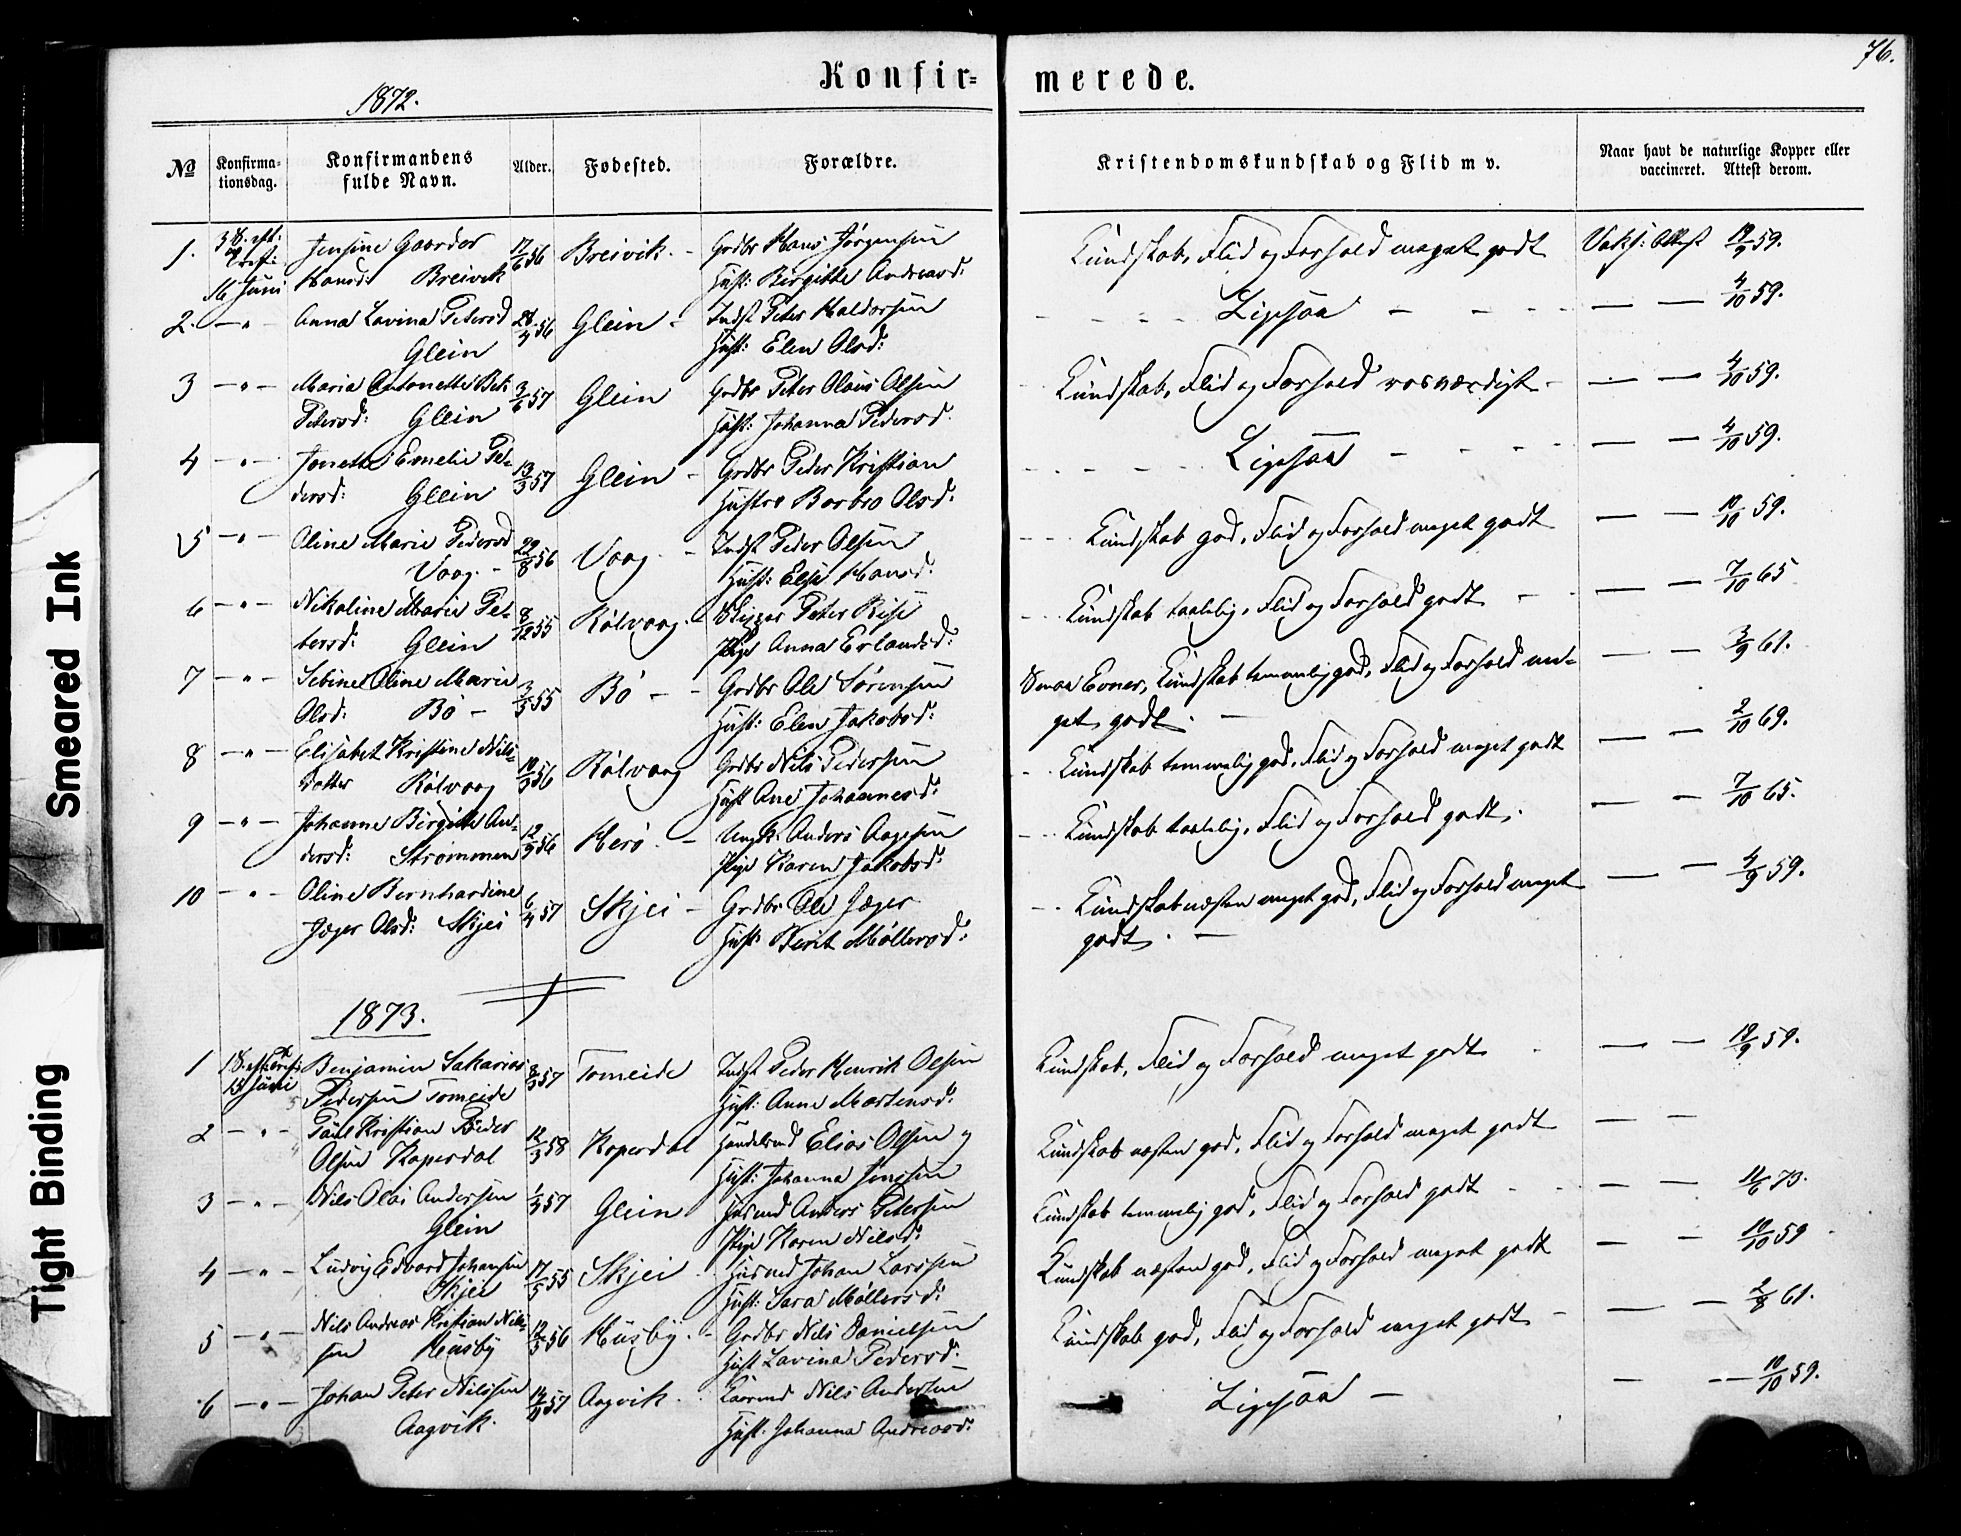 76.
Konfir= merede.
1872.
№ Konfirma= tionsdag. Konfirmandens fulde Navn. Alder. Fødested. Forældre. Kristendomskundskab og Flid m v. Naar havt de naturlige Kopper eller vaccineret. Attest derom.
1. Jensine Gaarder 17/6 56 Breivik. – Grdbr Hans Jørgensen Kundskab, Flid og Forhold meget godt Vaks: Attest 19/9 59.
16 Juni Hansd: Breivik Hust: Birgitte Andreasd:
2. – " – Anna Lavina Petersd 28/4 56 Glein – Indst Peter Haldorsen Ligesaa – – 4/10 59.
Glein Hust: Elen Olsd:
3 – " – Marie Antonette 3/6 57 Glein Grdbr Peter Olaus Olsen Kundskab, Flid og Forhold rosværdigt – – – 4/10 59.
Petersd: Glein Hust: Johanna Pedersd.
4 – " – Jonette Emelie Pe= 13/3 57 Glein – Grdbr Peder Kristian Ligesaa – – – 4/10 59.
dersd: Glein Hustru Barbro Olsd:
5 – " – Oline Marie Pedersd 22/8 56 Vaag. – Indst Peder Olsen Kundskab god, Flid og Forhold meget godt – – 10/10 59.
Vaag. – Hust: Else Hansd:
6 – " – Nikoline Marie Pet= 8/12 55 Rølvaag. – Peter Kundskab taalelig, Flid og Forhold godt – – – 7/10 65
tersd: Glein Pige Anna Erlandsd:
7 – " – Sebine Oline Marie 3/5 55 Bø – – Grdbr Ole Sørensen Smaa Evner, Kundskab temmelig god, Flid og Forhold me= – – 3/9 61.
Olsd: Bø – Hust: Elen Jakobsd: get godt. –
8 – " – Elisabet Kristine Nils= 10/3 56 Rølvaag Grdbr Nils Pedersen Kundskab temmelig god, Flid og Forhold meget godt – – 2/10 69.
datter Rølvaag Hust Ane Johannesd:
9 – " – Johanne Birgitte An= 12/9 56 Herø. – Ungk. Anders Aagesen Kundskab taalelig, Flid og Forhold godt. – – 7/10 65.
dersd: Strømmen Pige Karen Jakobsd:
10 – " – Oline Bernhardine 6/4 57 Skjei – Grdbr Ole Jæger Kundskab næsten meget god, Flid og Forhold meget – – 4/9 59.
Jæger Olsd: Skjei Hust: Berit Møllersd: godt. –
1873.
1 Benjamin Sakarias 8/3 57 Tomeide Indst Peder Henrik Olsen Kundskab, Flid og Forhold meget godt – – 19/9 59.
15 Juni Pedersen Tomeide Hust: Anne Mortensd:
2 – " – Paul Kristian Peder 12/3 58 Kopardal Elias Olsen og Kundskab næsten god, Flid og Forhold meget godt – –
Olsen Kopardal Hust: Johanna Jonssen
3 – " – Nils Olai Andersen 1/3 57 Glein Husmd Anders Petersen Kundskab temmelig god, Flid og Forhold godt – – – – 11/6 73.
Glein Pige Karen Nilsd:
4 – " – Ludvig Edvard Johansen 17/5 55 Skjei Husmd Johan Larssen Kundskab næsten god, Flid og Forhold meget godt – – 10/10 59
Skjei Hust: Sara Møllersd:
5 – " – Nils Andreas Kristian Nils= 12/5 56 Husby. – Grdbr Nils Danielsen Kundskab god, Flid og Forhold meget godt – – – 2/8 61.
sen Husby Hust Lavina Pedersd. –
6 – " – Johan Peter Nilssen 14/4 57 Aagvik. Nils Andersen Ligesaa – – – 10/10 59.
Aagvik. Hust. Johanna Andreasd:
Smeared Ink
Tight Binding